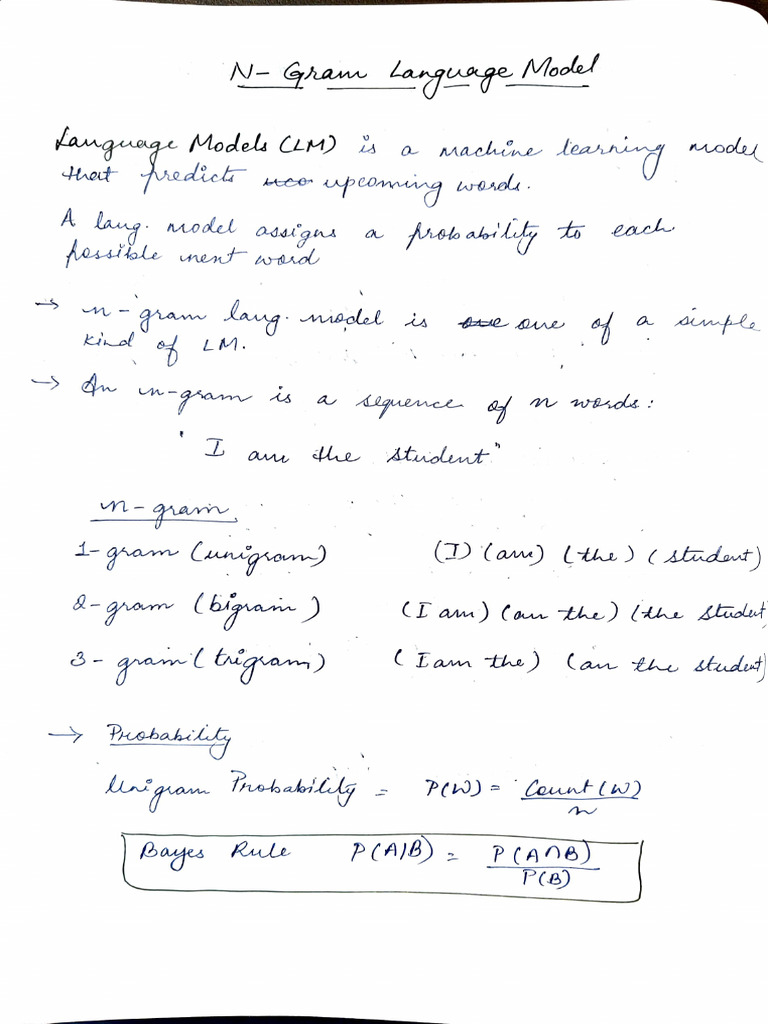 N- Gram Language Model
Language Models (LM) is a machine learning model
that predicts upcoming words.
A lang. model assigns a probability to each
possible next word
→ n-gram lang. model is one of a simple
kind of LM.
→ An n-gram is a sequence of n words:
"I am the student"
n-gram
1-gram (unigram) (I) (am) (the) (student)
2-gram (bigram) (I am) (am the) (the student
3-gram (trigram) (I am the) (am the student)
→ Probability
Unigram Probability = P(W) = Count(W)
n
Bayes Rule P(A|B) = P(A∩B)
P(B)